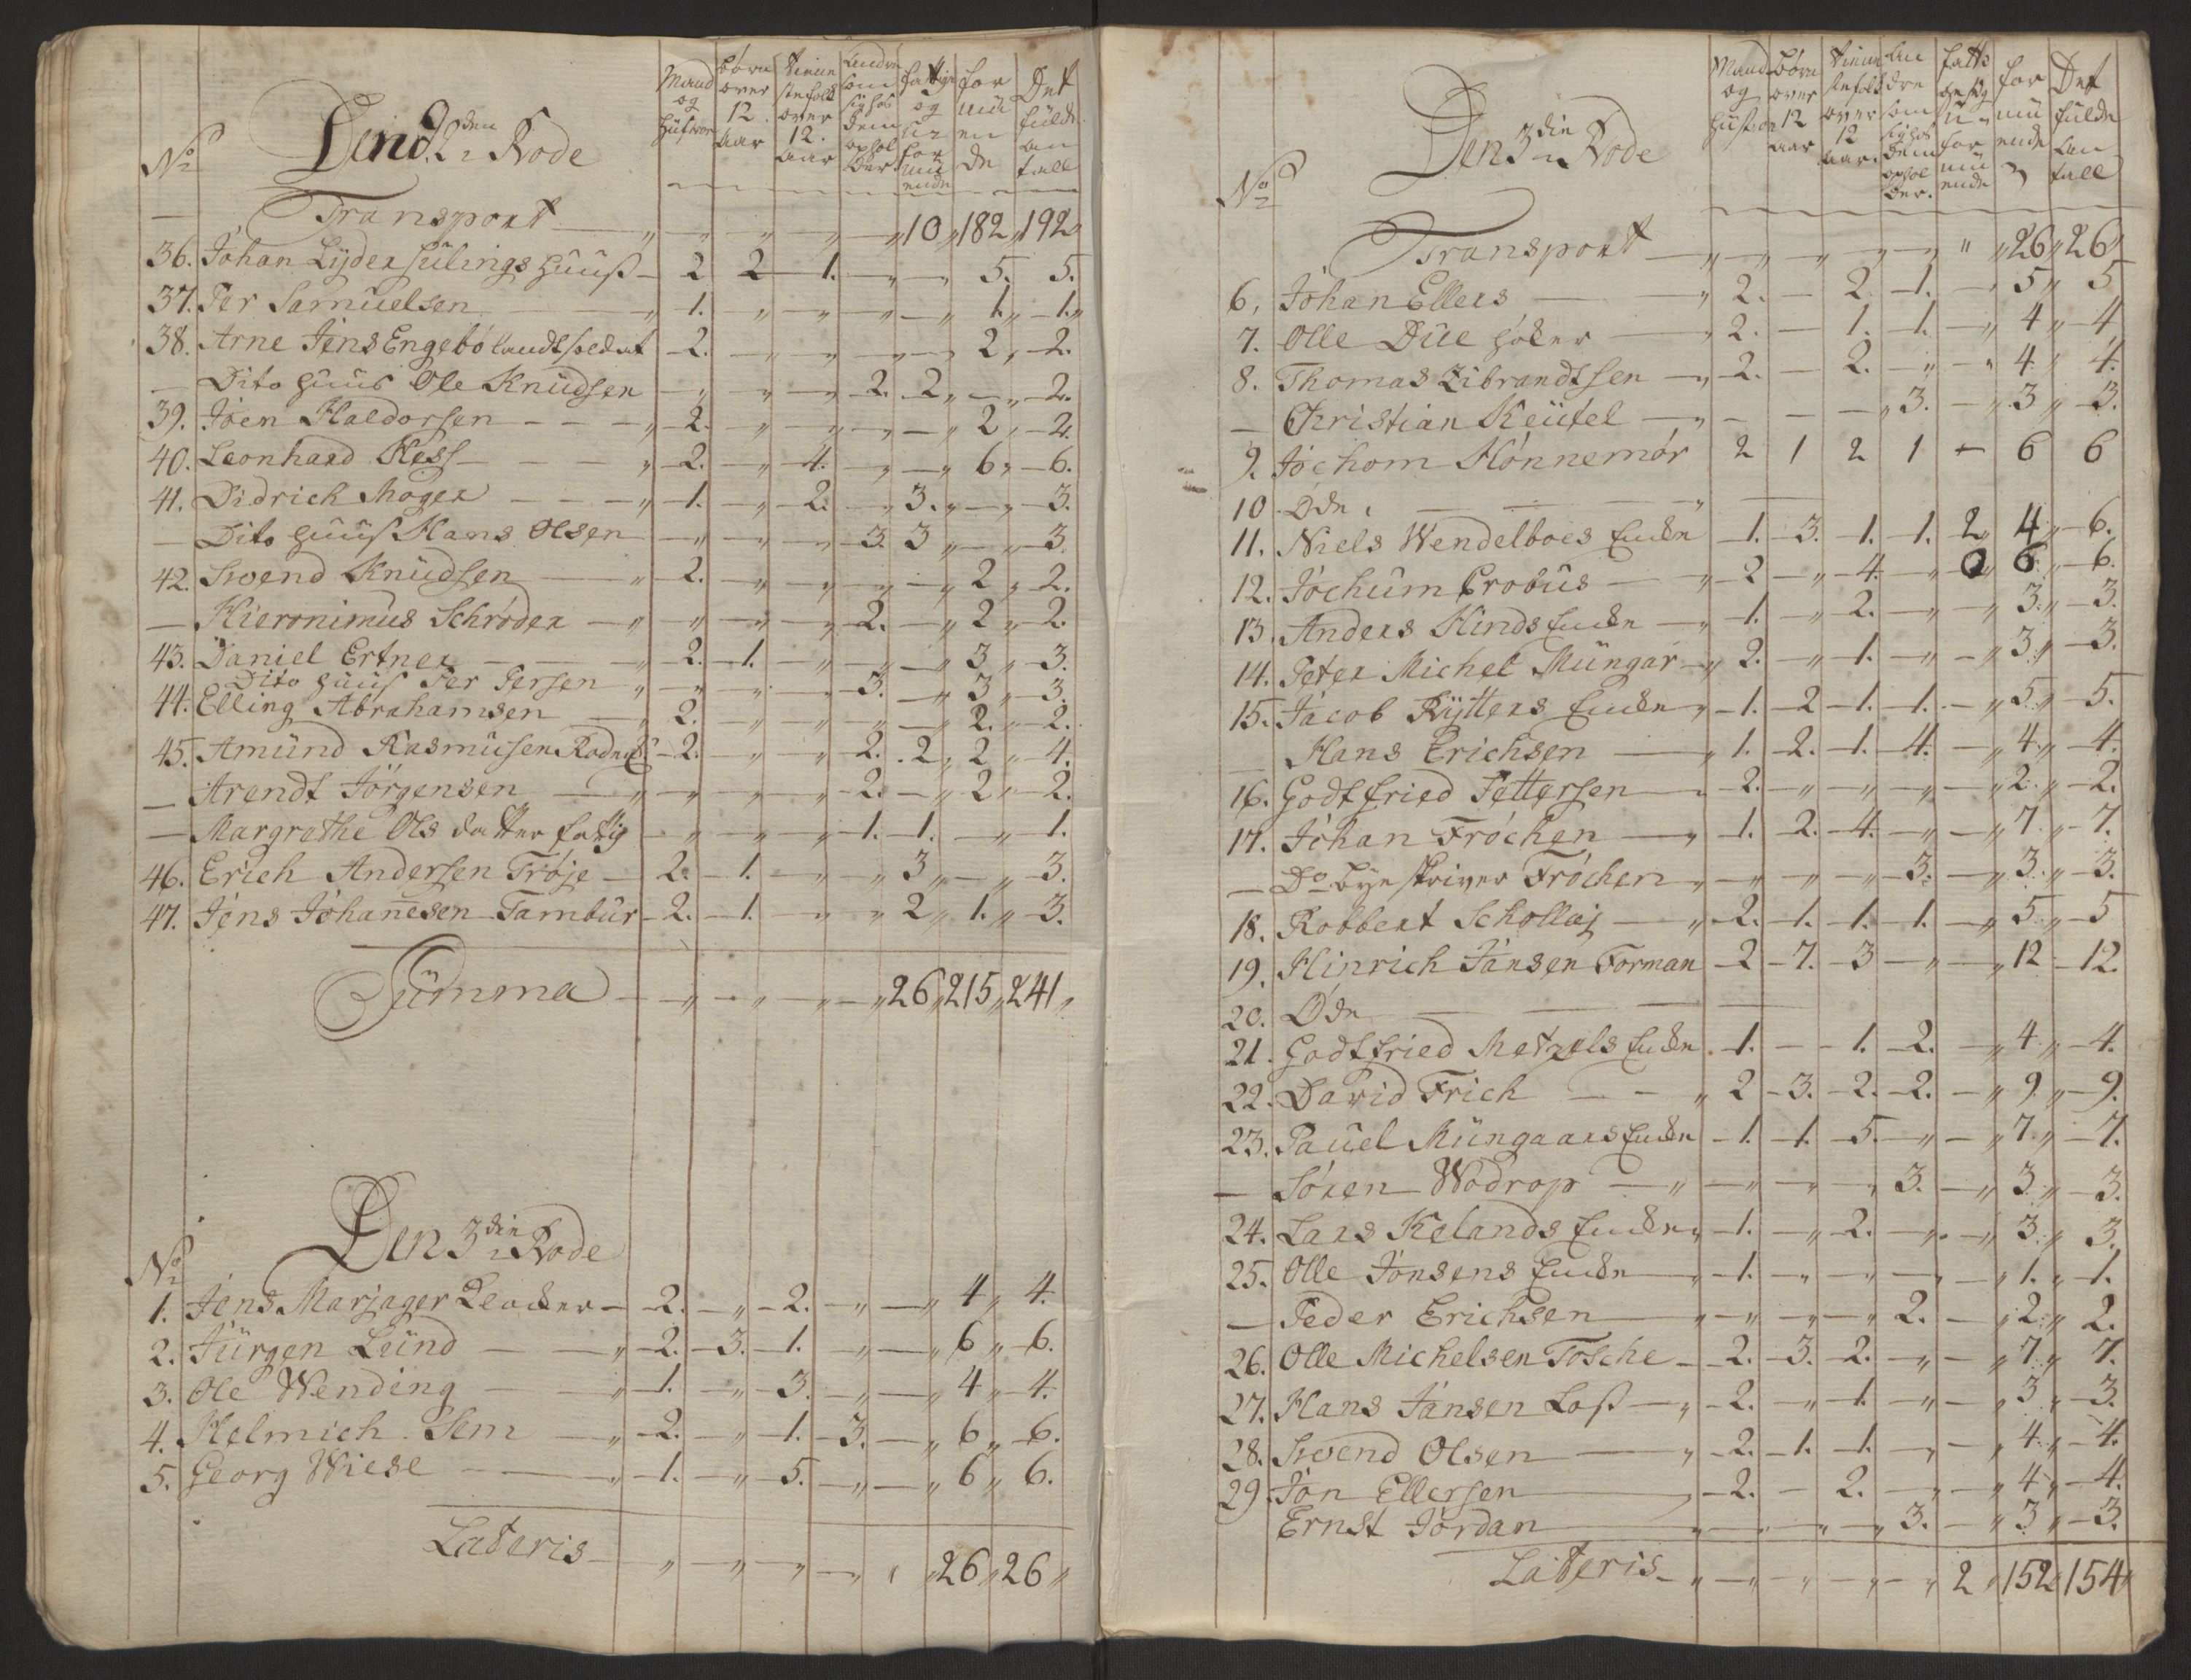 Den 2den Rode
No
Mand og Hustroe
børn over 12 aar
tienn stefolk over 12. aar
Andre som sig hos dem ophol der
fattige og uz for mü ende
for müen de
Det fulde an tall
Transport 10 182 192
36. Johan Lyder Sulings Huuß 2 2 1. 5. 5.
37. Per Samuelsen 1. 1. 1.
38. Arne Jens Engebø landtsoldat 2. 2 2.
Dito Huus Ole Knudsen 2. 2 2.
39. Joen Haldorsen 2. 2 2.
40. Leonhard Hess 2. 4. 6 6.
41. Didrich Moger 1. 2. 3. 3.
Dito Huus Hans Olsen 3. 3 3.
42. Swend Knudsen 2. 2 2.
Hieronimus Schrøder 2. 2 2.
43. Daniel Ertner 2. 1. 3 3.
Dito Huus Per Persen 3. 3 3.
44. Elling Abrahamsen 2. 2. 2.
45. Amund Rasmusen 2. 2. 2 2 4.
Arendt Jørgensen 2. 2 2.
Margrethe Ols datter fattig 1. 1. 1.
46. Erich Andersen Trøje 2. 1. 3 3.
47. Jens Johanesen Tambur 2. 1. 2 1. 3.
Summa 26 215 241
Den 3die Rode
No
1. Jens Marjager 2. 2. 4 4.
2. Jürgen Lund 2. 3. 1. 6 6.
3. Ole Wending 1. 3. 4 4.
4. Helmich Sem 2. 1. 3. 6 6.
5. Georg Wiese 1. 5. 6 6.
Lateris 26 26
Den 3die Rode
No
Mand og Hustroe
Børn over 12 aar
tienn stefolk over 12 aar.
An dre som sig hos dem ophol der.
fatti ge og u for mü ende
for mü ende
Det fulde an tall
Transport 26 26
6. Johan Ellers 2. 2. 1. 5 5
7. Olle Due Høker 2. 1. 1. 4 4
8. Thomas Zibrandtsen 2. 2. 4 4.
Christian Keutel 3. 3 3.
9. Jochom Hønnemør 2 1 2 1 6 6
10 Øde
11. Niels Wendelboes Encke 1. 3. 1. 1. 2 4 6.
12. Jochum Probus 2 4. 0 6 6.
13. Anders Hinds Encke 1. 2. 3. 3.
14. Peter Michel Müngar 2. 1. 3. 3.
15. Jacob Rytters Encke 1. 2 1. 1. 5. 5.
Hans Erichsen 1. 2. 1. 4. 4. 4.
16. Godtfried Pettersen 2. 2. 2.
17. Johan Frøchen 1. 2. 4. 7. 7.
Do Byeskriver Frøchen 3. 3. 3.
18. Robbert Schollaj 2. 1. 1. 1. 5. 5
19. Hinrich Jansen Forman 2 7. 3 12 12.
20. Øde
21. Godtfried Metzels Encke 1. 1. 2. 4. 4.
22. David Frich 2 3. 2. 2. 9. 9.
23. Pauel Müngaars Encke 1. 1. 5. 7. 7.
Søren Wodrop 3. 3. 3.
24. Lars Kelands Encke 1. 2. 3. 3.
25. Olle Jonsens Encke 1. 1. 1.
Peder Erichsen 2. 2. 2.
26. Olle Michelsen Tosche 2. 3. 2. 7. 7.
27. Hans Jansen Loss 2. 1. 3. 3.
28. Swend Olsen 2. 1. 1. 4. 4.
29. Jon Ellersen 2. 2. 4. 4.
Ernst Jordan 3. 3 3.
Lateris 2 152 154